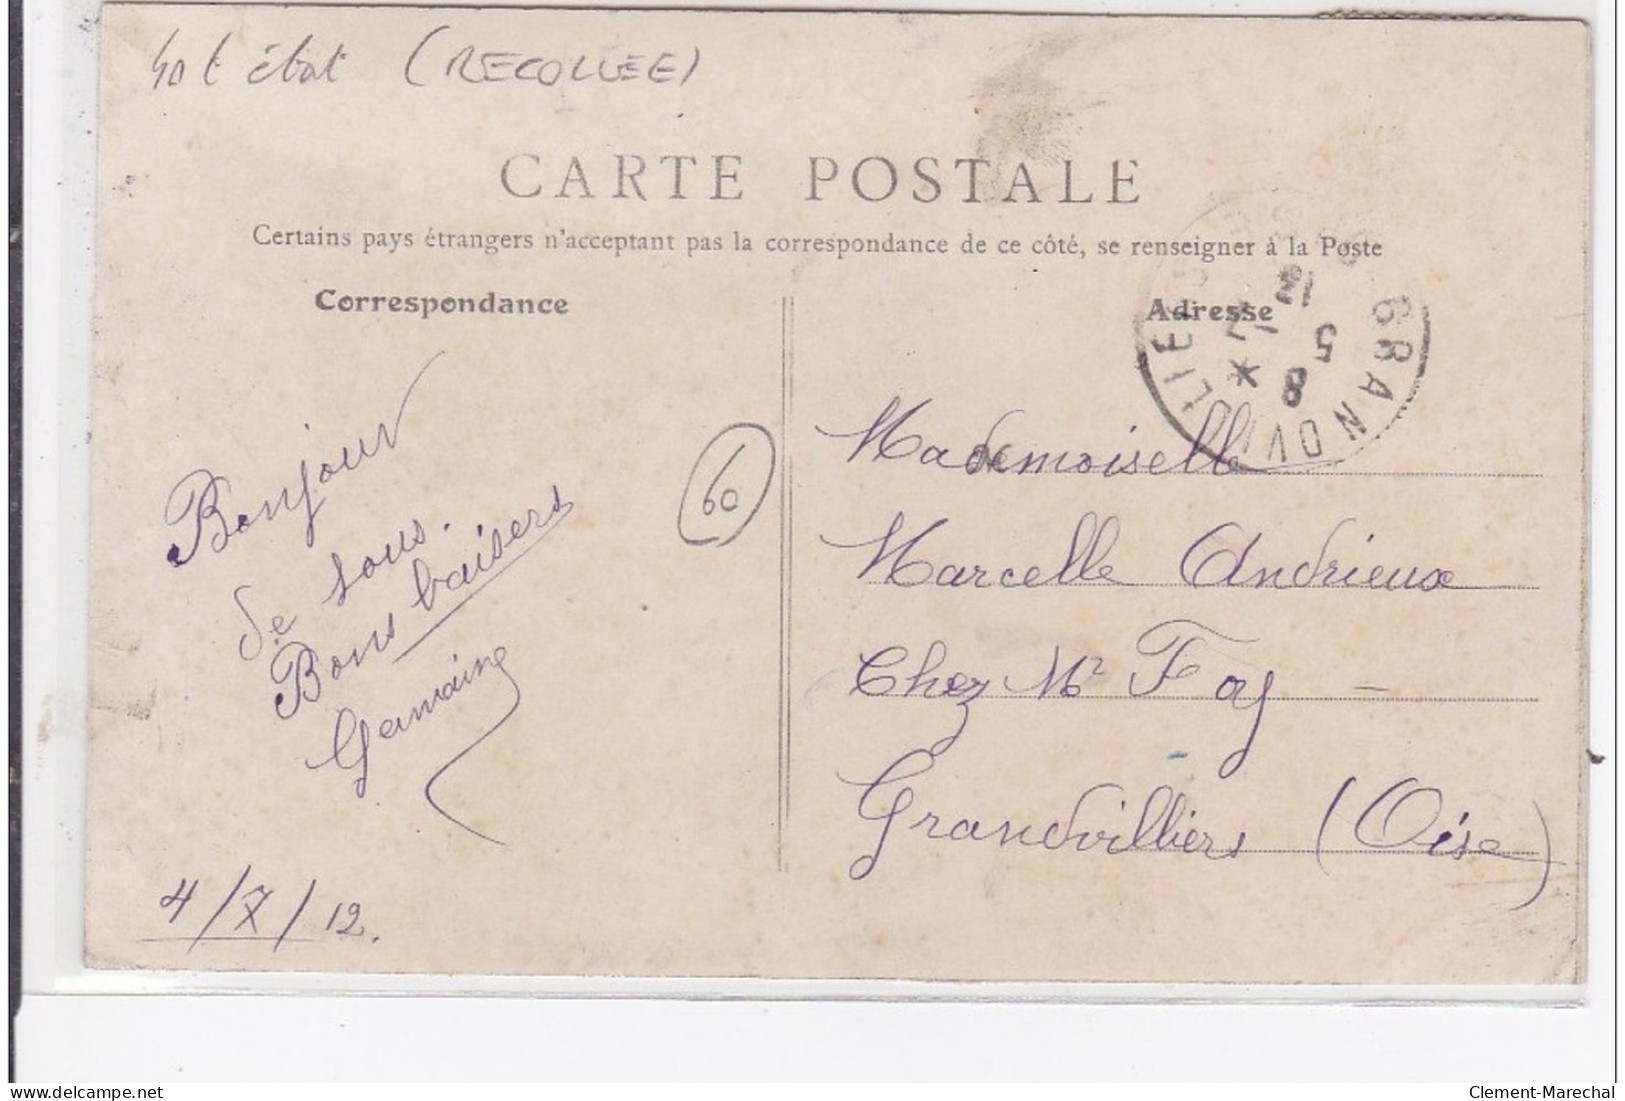 état (RECOLLÉE)
CARTE POSTALE
Certains pays étrangers n'acceptant pas la correspondance de ce côté, se renseigner à la Poste
Correspondance
Bonjour
de tous.
Bons baisers
Germaine
4/7/12.
60
Adresse
GRANDVILLIERS
8
5
7
12
Mademoiselle
Marcelle Andrieux
Chez Mr Foy -
Grandvilliers (Oise)
delcampe.net
Clement-Marechal